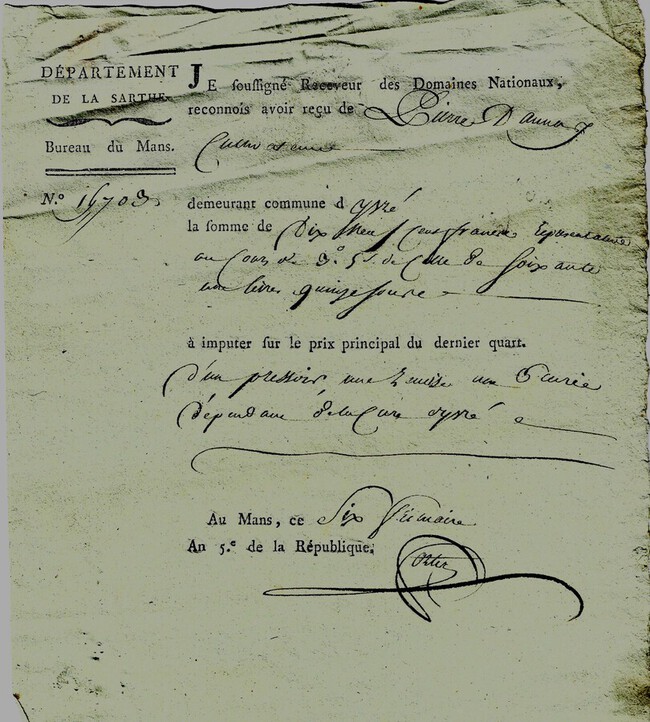 DÉPARTEMENT
DE LA SARTHE.
Bureau du Mans.
N.º 16703
JE soussigné Receveur des Domaines Nationaux,
reconnois avoir reçu de Pierre
demeurant commune d yvré
la somme de Dix neuf Cent francs
au Cours de 3º 5 s. de Celle de Soixante
une livres quinze sous
à imputer sur le prix principal du dernier quart.
d'un pressoir une remise une Ecurie
dépendant de la Cure dyvré
Au Mans, ce Six frimaire
An 5.e de la République.